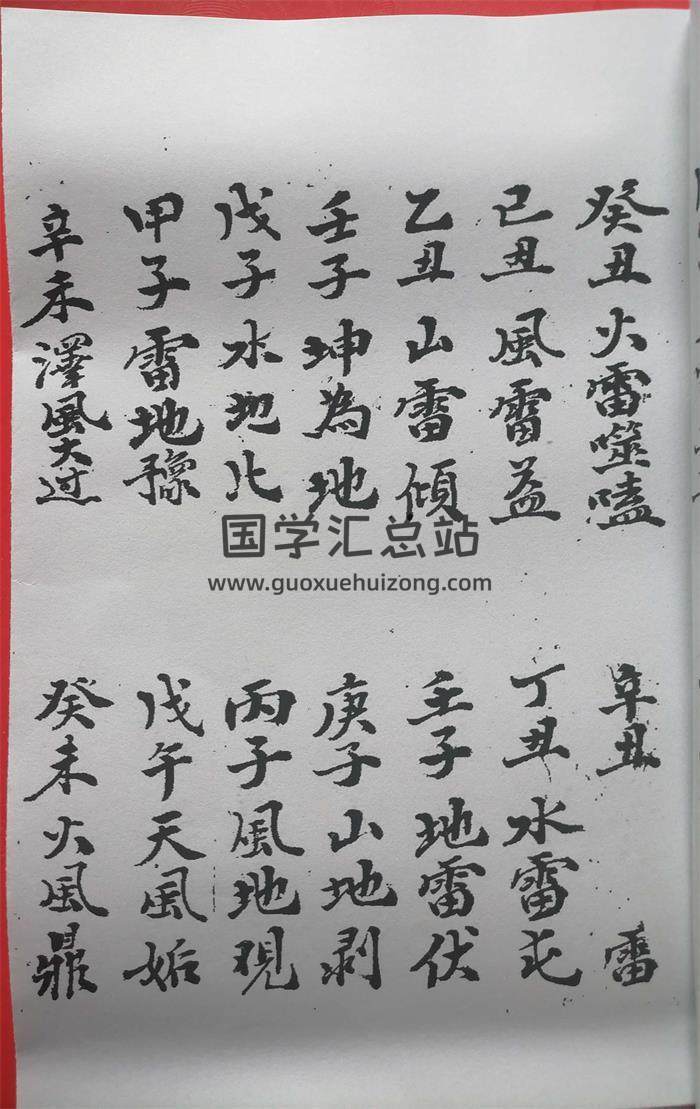 癸丑火雷噬嗑
辛丑 雷
己丑風雷益
丁丑水雷屯
乙丑山雷傾
壬子地雷伏
壬子坤為地
庚子山地剥
戊子水地比
丙子風地观
甲子雷地豫
戊午天風姤
辛未澤風大过
癸未火風鼎
国学汇总站
www.guoxuehuizong.com